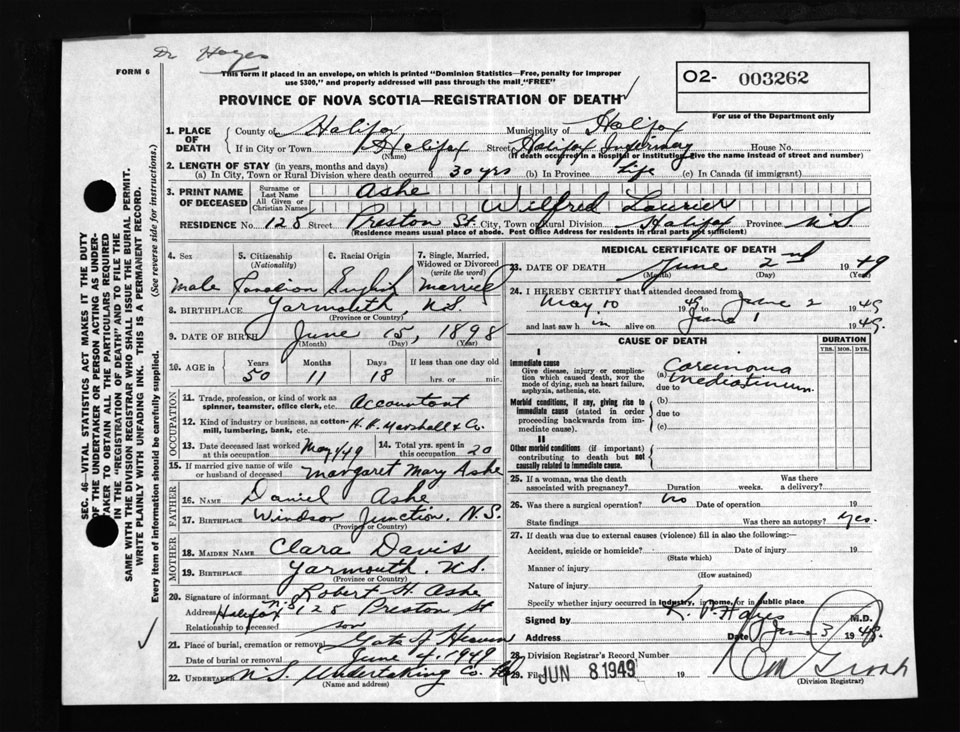 Dr Hayes
FORM 6
This form if placed in an envelope, on which is printed "Dominion Statistics—Free, penalty for improper
use $300," and properly addressed will pass through the mail "FREE"
O2- 003262
For use of the Department only
PROVINCE OF NOVA SCOTIA—REGISTRATION OF DEATH
1. PLACE OF DEATH { County of Halifax Municipality of Halifax
If in City or Town Halifax Street Halifax Infirmary House No.
(Name) (If death occurred in a hospital or institution, give the name instead of street and number)
2. LENGTH OF STAY (in years, months and days)
(a) In City, Town or Rural Division where death occurred 30 yrs (b) In Province Life (c) In Canada (if immigrant)
3. PRINT NAME OF DECEASED { Surname or Last Name Ashe
All Given or Christian Names Wilfred Laurier
RESIDENCE No. 128 Street Preston St. City, Town or Rural Division Halifax Province N.S.
(Residence means usual place of abode. Post Office Address for residents in rural parts not sufficient)
4. Sex 5. Citizenship (Nationality) 6. Racial Origin 7. Single, Married, Widowed or Divorced (write the word)
male Canadian English married
8. BIRTHPLACE Yarmouth, N.S.
(Province or Country)
9. DATE OF BIRTH June 15, 1898
(Month) (Day) (Year)
10. AGE in { Years Months Days If less than one day old
50 11 18 hrs. or min.
OCCUPATION
11. Trade, profession or kind of work as spinner, teamster, office clerk, etc. Accountant
12. Kind of industry or business, as cotton-mill, lumbering, bank, etc. H. R. Marshall & Co.
13. Date deceased last worked at this occupation May/49 14. Total yrs. spent in this occupation 20
15. If married give name of wife or husband of deceased Margaret Mary Ashe
FATHER
16. NAME Daniel Ashe
17. BIRTHPLACE Windsor Junction, N.S.
(Province or Country)
MOTHER
18. MAIDEN NAME Clara Davis
19. BIRTHPLACE Yarmouth. N.S.
(Province or Country)
20. Signature of informant Robert H. Ashe
Address Halifax N.S. 128 Preston St
Relationship to deceased son
21. Place of burial, cremation or removal Gate of Heaven
Date of burial or removal June 4, 1949
22. UNDERTAKER N.S. Undertaking Co. Ltd
(Name and address)
MEDICAL CERTIFICATE OF DEATH
23. DATE OF DEATH June 2nd 1949
(Month) (Day) (Year)
24. I HEREBY CERTIFY that I attended deceased from
May 10 1949 to June 2 1949
and last saw h im alive on June 1 1949.
CAUSE OF DEATH DURATION
YRS. MOS. DYS.
I
Immediate cause
Give disease, injury or complication which caused death, not the mode of dying, such as heart failure, asphyxia, asthenia, etc.
(a) Carcinoma
due to mediastinum
Morbid conditions, if any, giving rise to immediate cause (stated in order proceeding backwards from immediate cause).
(b)
due to
(c)
II
Other morbid conditions (if important) contributing to death but not causally related to immediate cause.
25. If a woman, was the death associated with pregnancy? Duration weeks. Was there a delivery?
26. Was there a surgical operation? no Date of operation 19
State findings Was there an autopsy? yes.
27. If death was due to external causes (violence) fill in also the following:—
Accident, suicide or homicide? Date of injury 19
(State which)
Manner of injury
(How sustained)
Nature of injury
Specify whether injury occurred in industry, in home, or in public place
Signed by K. P. Hayes M.D.
Address Date June 3 1949.
28. Division Registrar's Record Number
29. Filed JUN 8 1949 19
(Division Registrar)
SEC. 46—VITAL STATISTICS ACT MAKES IT THE DUTY
OF THE UNDERTAKER OR PERSON ACTING AS UNDERTAKER TO OBTAIN ALL THE PARTICULARS REQUIRED
IN THE "REGISTRATION OF DEATH" AND TO FILE THE
SAME WITH THE DIVISION REGISTRAR WHO SHALL ISSUE THE BURIAL PERMIT.
WRITE PLAINLY WITH UNFADING INK. THIS IS A PERMANENT RECORD.
Every item of information should be carefully supplied. (See reverse side for instructions.)